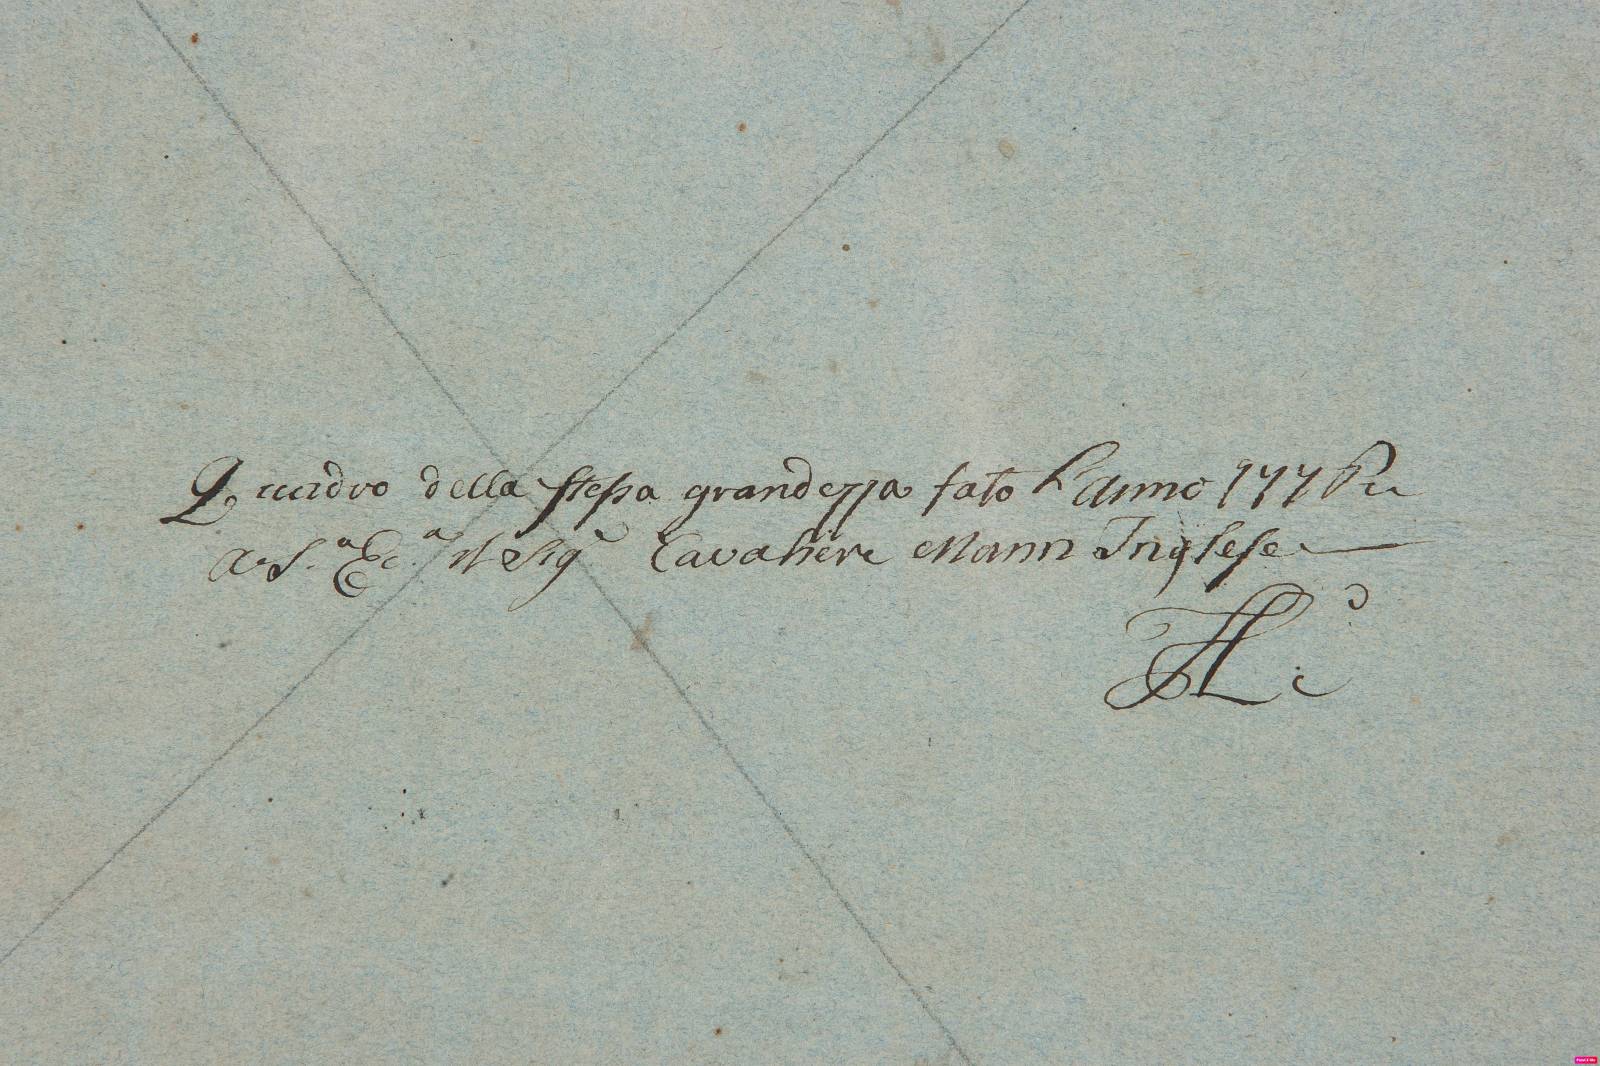 Quadro della stessa grandezza fato L'anno 177
a S.ª Ec.ª il Sigʳ Cavaliere Mann Inglese